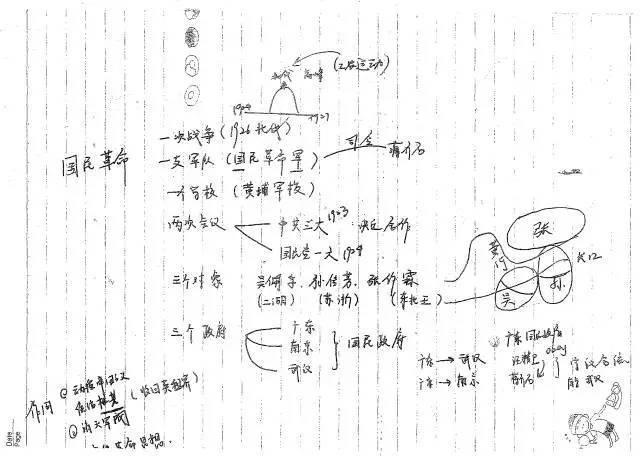 (工农运动)
北伐 高峰
1924 1927
一次战争(1926北伐)
国民革命
一支军队(国民革命军) 司令 蒋介石
一个学校(黄埔军校)
两次会议
中共三大 1923 决定合作
国民党一大 1924
三个对象 吴佩孚、孙传芳、张作霖
(二湖) (苏浙) (东北王)
张
黄河
长江
吴
孙
三个政府
广东
南京
武汉
国民政府
广东 → 武汉
广东 → 南京
广东国民政府
汪精卫
蒋介石
宁汉合流
作用 ① 动摇帝国主义
统治根基 (收回英租界)
② 消灭军阀
革命思想.
Date
Page